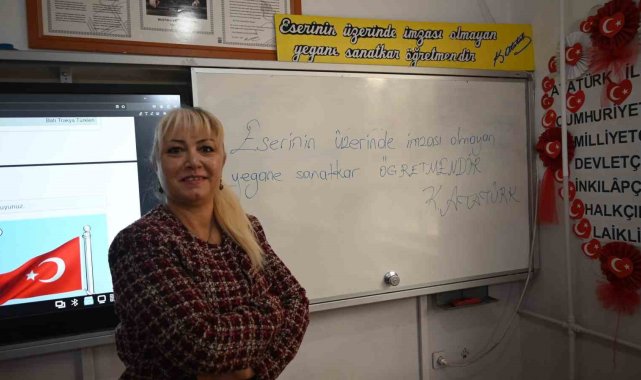 Eserinin üzerinde imzası olmayan
yegane sanatkar öğretmendir
Batı Trakya Türkleri
Eserinin üzerinde imzası olmayan
yegane sanatkar ÖĞRETMENDİR
K. ATATÜRK
ATATÜRK İL
CUMHURİYE
MİLLİYETÇ
DEVLETÇ
İNKILÂPÇ
HALKÇI
LAİKLİ